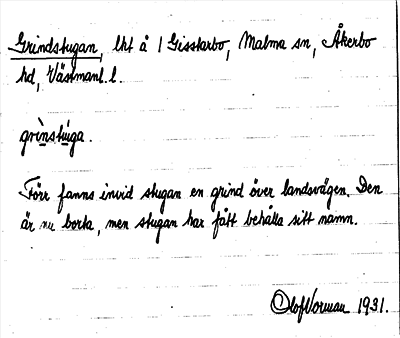 Grindstugan, lht å 1 Gisslarbo, Malma sn, Åkerbo
hd, Västmanl. l.
grìnstúga.
Förr fanns invid stugan en grind över landsvägen. Den
är nu borta, men stugan har fått behålla sitt namn.
Olof Norman 1931.